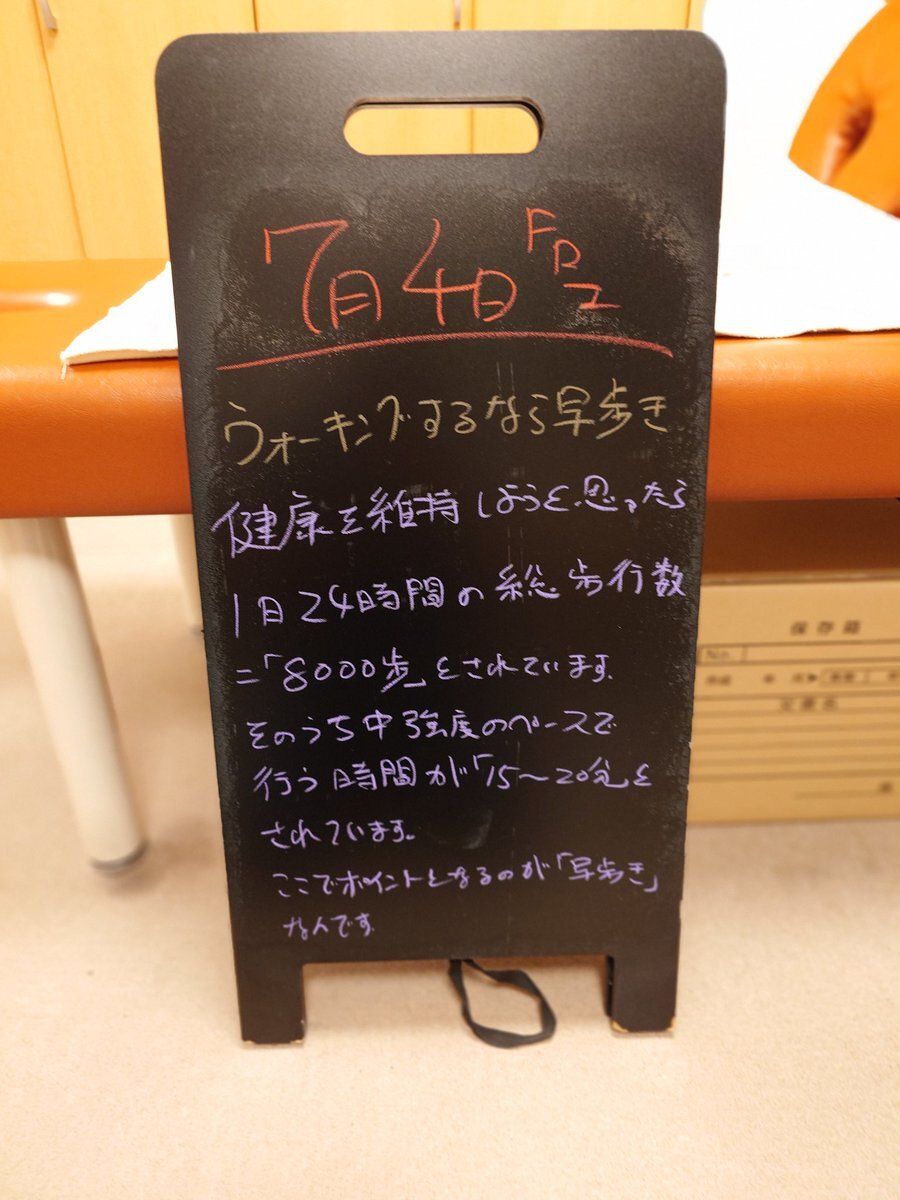 7月4日
ウォーキングするなら早歩き
健康を維持しようと思ったら
1日24時間の総歩行数
=「8000歩」とされています。
そのうち中強度のペースで
行う時間が「15〜20分」と
されています。
ここでポイントとなるのが「早歩き」
なんです
保存箱
No.